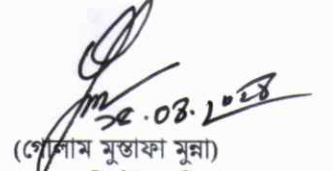 ২৫.০৪.২০২৪
(গোলাম মুস্তাফা মুন্না)